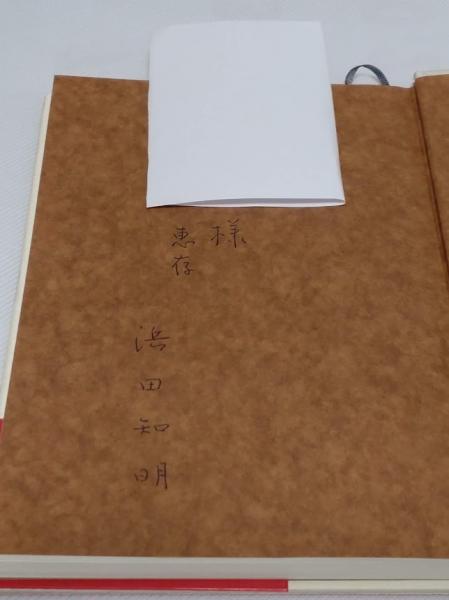 様
恵存
浜田知明